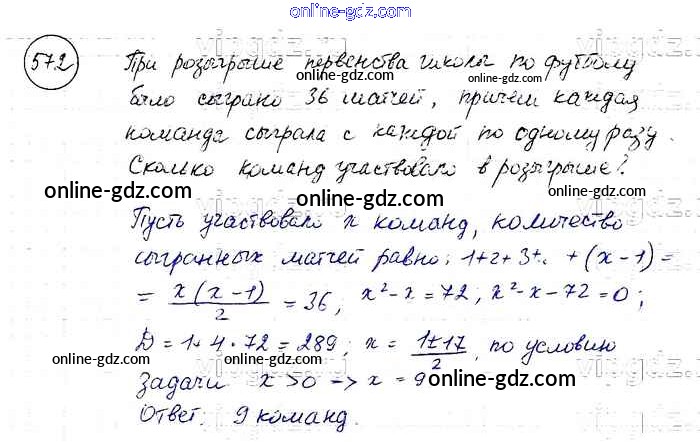 online-gdz.com
572
При розыгрыше первенства школы по футболу
было сыграно 36 матчей, причем каждая
команда сыграла с каждой по одному разу.
Сколько команд участвовало в розыгрыше?
online-gdz.com
online-gdz.com
Пусть участвовало x команд, количество
сыгранных матчей равно: 1+2+3+.. +(x-1)=
online-gdz.com
= x(x-1)/2 = 36; x²-x=72; x²-x-72=0;
online-gdz.com
Д=1+4·72=289; x = 1±17/2, по условию
online-gdz.com
online-gdz.com
задачи x>0 -> x=9
online-gdz.com
Ответ. 9 команд.
online-gdz.com